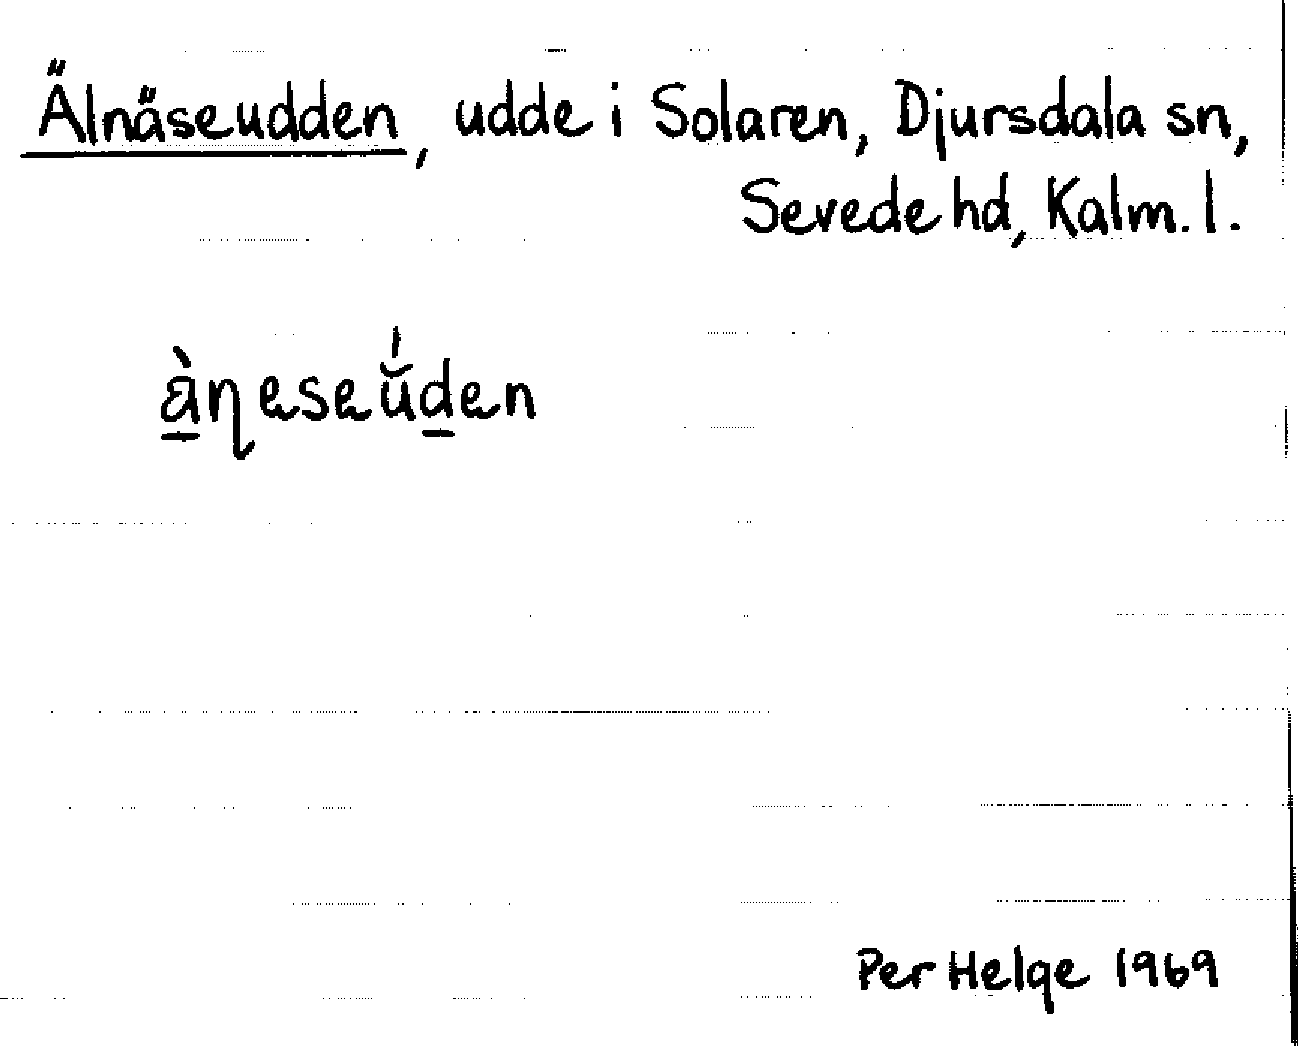 Älnäseudden, udde i Solaren, Djursdala sn,
Sevede hd, Kalm. l.
àɳeseŭ́den
Per Helge 1969